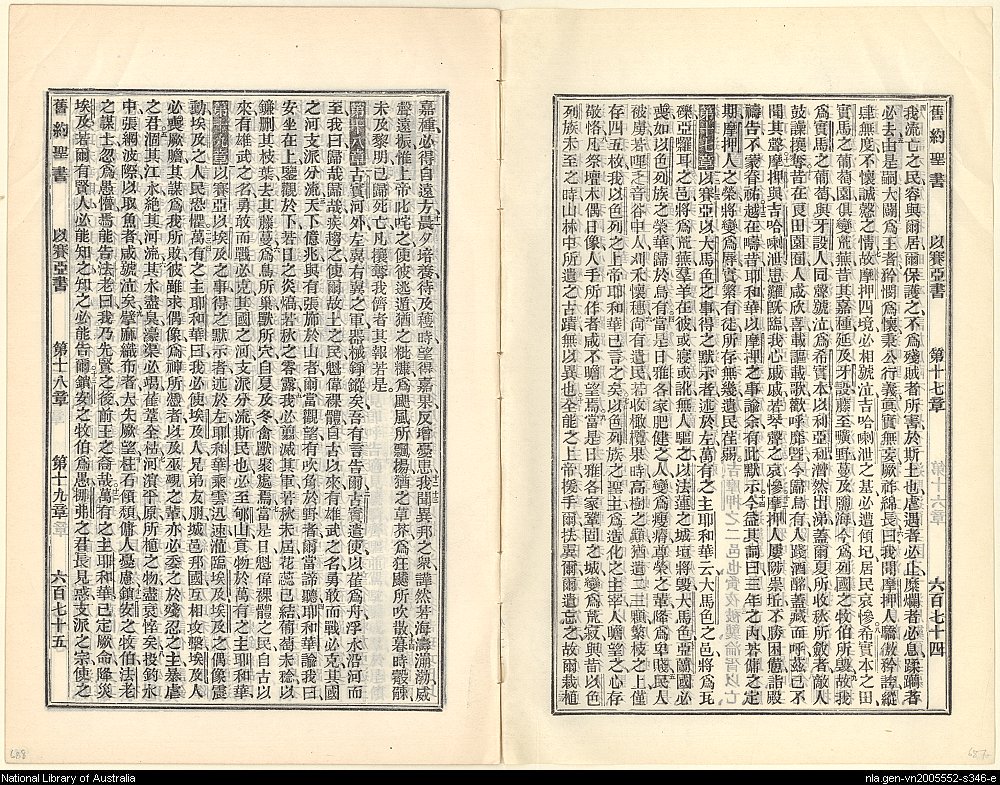 舊約聖書 以賽亞書 第十七章 第十六章 六百七十四
我流亡之民容與爾居爾保護之不為殘賊者所害於斯土也虐遇者必止糜爛者必息蹂躪者
必去由是嗣大闢為王者矜憫為懷秉公行義眞實無妄厥祚綿長曰我聞摩押人驕傲矜誇縱
肆無度不懷誠慤之情故摩押四境必相號泣吉哈喇泄之基必遭傾圮居民哀慘希實本之田
為實馬之葡萄與牙設人同聲號泣為希實本以利亞利潸然出涕蓋爾夏所收秋所斂者敵人
鼓譟攘奪昔在良田園囿人咸欣喜載謳載歌歡呼靡曁今歸烏有人踐酒醡蓋藏而呼茲已不
聞其聲摩押與吉哈喇泄思難慨臨我心戚戚若琴聲之哀慘摩押人屢陟崇坵不勝困憊詣殿
禱告不蒙眷祐越在疇昔耶和華以摩押之事諭余有此默示今益其詞曰三年之內若傭之定
期摩押人之榮將變為辱實繁有徒所存無幾遺民荏弱
以賽亞以大馬色之事得之默示者述於左萬有之主耶和華云大馬色之邑將為瓦
礫亞羅耳之邑將為荒蕪羣羊在彼或寢或訛無人驅之以法蓮之城垣將毀大馬色亞蘭國必
喪如以色列族之榮華歸於烏有當是日雅各家肥健之人變為瘦瘠尊榮之輩降為卑賤民人
被虜若哩乏音谷中人刈禾懷穗尚有遺民若收橄欖果時高樹之巔猶遺二三繁枝之上僅
存四五枚我以色列之上帝耶和華已言之矣以色列族之聖主為造化之主宰人瞻望之心存
敬恪凡祭壇木偶日像人手所作者咸不瞻望焉當是日雅各家鞏固之城變為荒寂與昔以色
列族未至之時山林中所遺之古蹟無以異也全能之上帝援手爾扶翼爾爾遺忘之故爾栽植
嘉種必得自遠方晨夕培養待及穫時望得嘉果反增憂思我聞異邦之衆譁然若海濤湧渤威
聲遠振惟上帝叱咤之使彼逃遁猶之粃糠為飓風所飄揚猶之草芥為狂飈所吹散暮時觳觫
未及黎明已歸死亡凡攘奪我儕者其報若是
古實河外左翼右翼之軍器械錚鏦矣吾有言告爾古實遣使以葦為舟浮水沿河而
至我曰歸哉歸哉疾趨之使爾故土之民魁偉裸體自古以來有雄武之名勇敢而戰必克其國
之河支派分流天下億兆與有張旂於山者爾當觀望有吹角於野者爾當諦聽耶和華諭我曰
安坐在上鑒觀於下若日之炎熇若秋之零露我必翦滅其軍若秋未屆花蕊已結葡萄未稔以
鐮刪其枝葉去其藤蔓為鳥所巢獸所穴自夏及冬禽獸聚處焉當是日魁偉裸體之民自古以
來有雄武之名勇敢而戰必克其國之河支派分流斯民也必至郇山貢物於萬有之主耶和華
以賽亞以埃及之事得之默示者述於左耶和華乘雲迅速涖臨埃及埃及之偶像震
動埃及之人民恐懼萬有之主耶和華曰我必使埃及人兄弟友朋城邑邦國互相攻擊埃及人
必喪厥膽其謀為我所敗彼雖求偶像為神所憑者以及巫覡之輩亦必委之於殘忍之主暴虐
之君涸其江水絕其河流其水盡臬濠渠必竭萑葦全枯河濱平原所植之物盡衰悴矣投釣水
中張網波際以取魚者咸號泣矣擘麻織布者大失厥望柱石傾頹傭人憂慮鎖安之牧伯法老
之謀士忽為愚懵焉能告法老曰我乃先賢之後前王之裔哉萬有之主耶和華已定厥命降災
埃及若爾有賢人必能知之知之必能告爾鎖安之牧伯為愚挪弗之酋長見惑支派之宗使之
舊約聖書 以賽亞書 第十八章 第十九章 六百七十五
688
687
National Library of Australia
nla.gen-vn2005552-s346-e